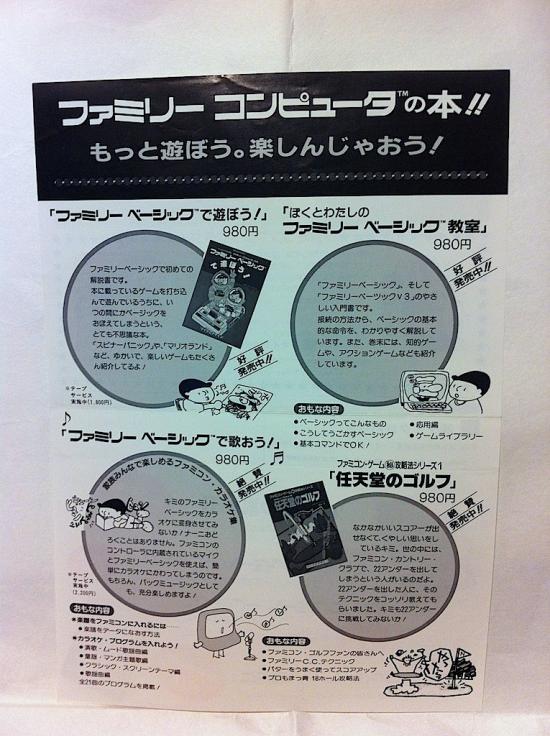 ファミリー コンピュータ™の本!!
もっと遊ぼう。楽しんじゃおう!
「ファミリー ベーシック™で遊ぼう!」
980円
ファミリーベーシックで初めての
解説書です。
本に載っているゲームを打ち込
んで遊んでいるうちに、い
つの間にかベーシックを
おぼえてしまうという、
とても不思議な本。
「スピナーパニック」や、「マリオランド」
など、ゆかいで、楽しいゲームもたくさ
ん紹介してるよ!
ファミリーベーシック
で遊ぼう!
好評
発売中!!
※テープ
サービス
実施中(1,800円)
「ぼくとわたしの
ファミリー ベーシック™ 教室」
980円
好評
発売中!!
「ファミリーベーシック」、そして
「ファミリーベーシックv3」のやさ
しい入門書です。
接続の方法から、ベーシックの基本
的な命令を、わかりやすく解説して
います。また、巻末には、知的ゲ
ームや、アクションゲームなども紹介
しています。
おもな内容
●ベーシックってこんなもの
●こうしてうごかすベーシック
●基本コマンドでOK!
●応用編
●ゲームライブラリー
「ファミリー ベーシック™で歌おう!」
980円
家族みんなで楽しめるファミコン・カラオケ集
絶賛
発売中!!
キミのファミリー
ベーシックをカラ
オケに変身させてみ
ないか!ナーニおど
ろくことはありません。ファミコンの
コントローラに内蔵されているマイク
とファミリーベーシックを使えば、簡
単にカラオケにかわってしまうのです。
もちろん、バックミュージックとして
も、充分楽しめますよ!
※テープ
サービス
実施中
(2,200円)
おもな内容
★楽譜をファミコンに入れるには……
●楽譜をデータになおす方法
★カラオケ・プログラムを入れよう!
●演歌・ムード歌謡曲編
●童謡・マンガ主題歌編
●クラシック・スクリーンテーマ編
●歌謡曲編
全21曲のプログラムを掲載!
ファミコン・ゲーム㊙攻略法シリーズ1
「任天堂のゴルフ」
980円
任天堂のゴルフ
絶賛
発売中!!
なかなかいいスコアーが出
せなくて、くやしい思いをし
ているキミ。世の中には、
ファミコン・カントリー・
クラブで、22アンダーを出して
しまうという人がいるのだよ。
22アンダーを出した人に、その
テクニックをコッソリ教えても
らいました。キミも22アンダー
に挑戦してみないか!
おもな内容
●ファミコン・ゴルフファンの皆さんへ
●ファミリーC.C.テクニック
●パターをうまく使ってスコアアップ
●プロもまっ青 18ホール攻略法